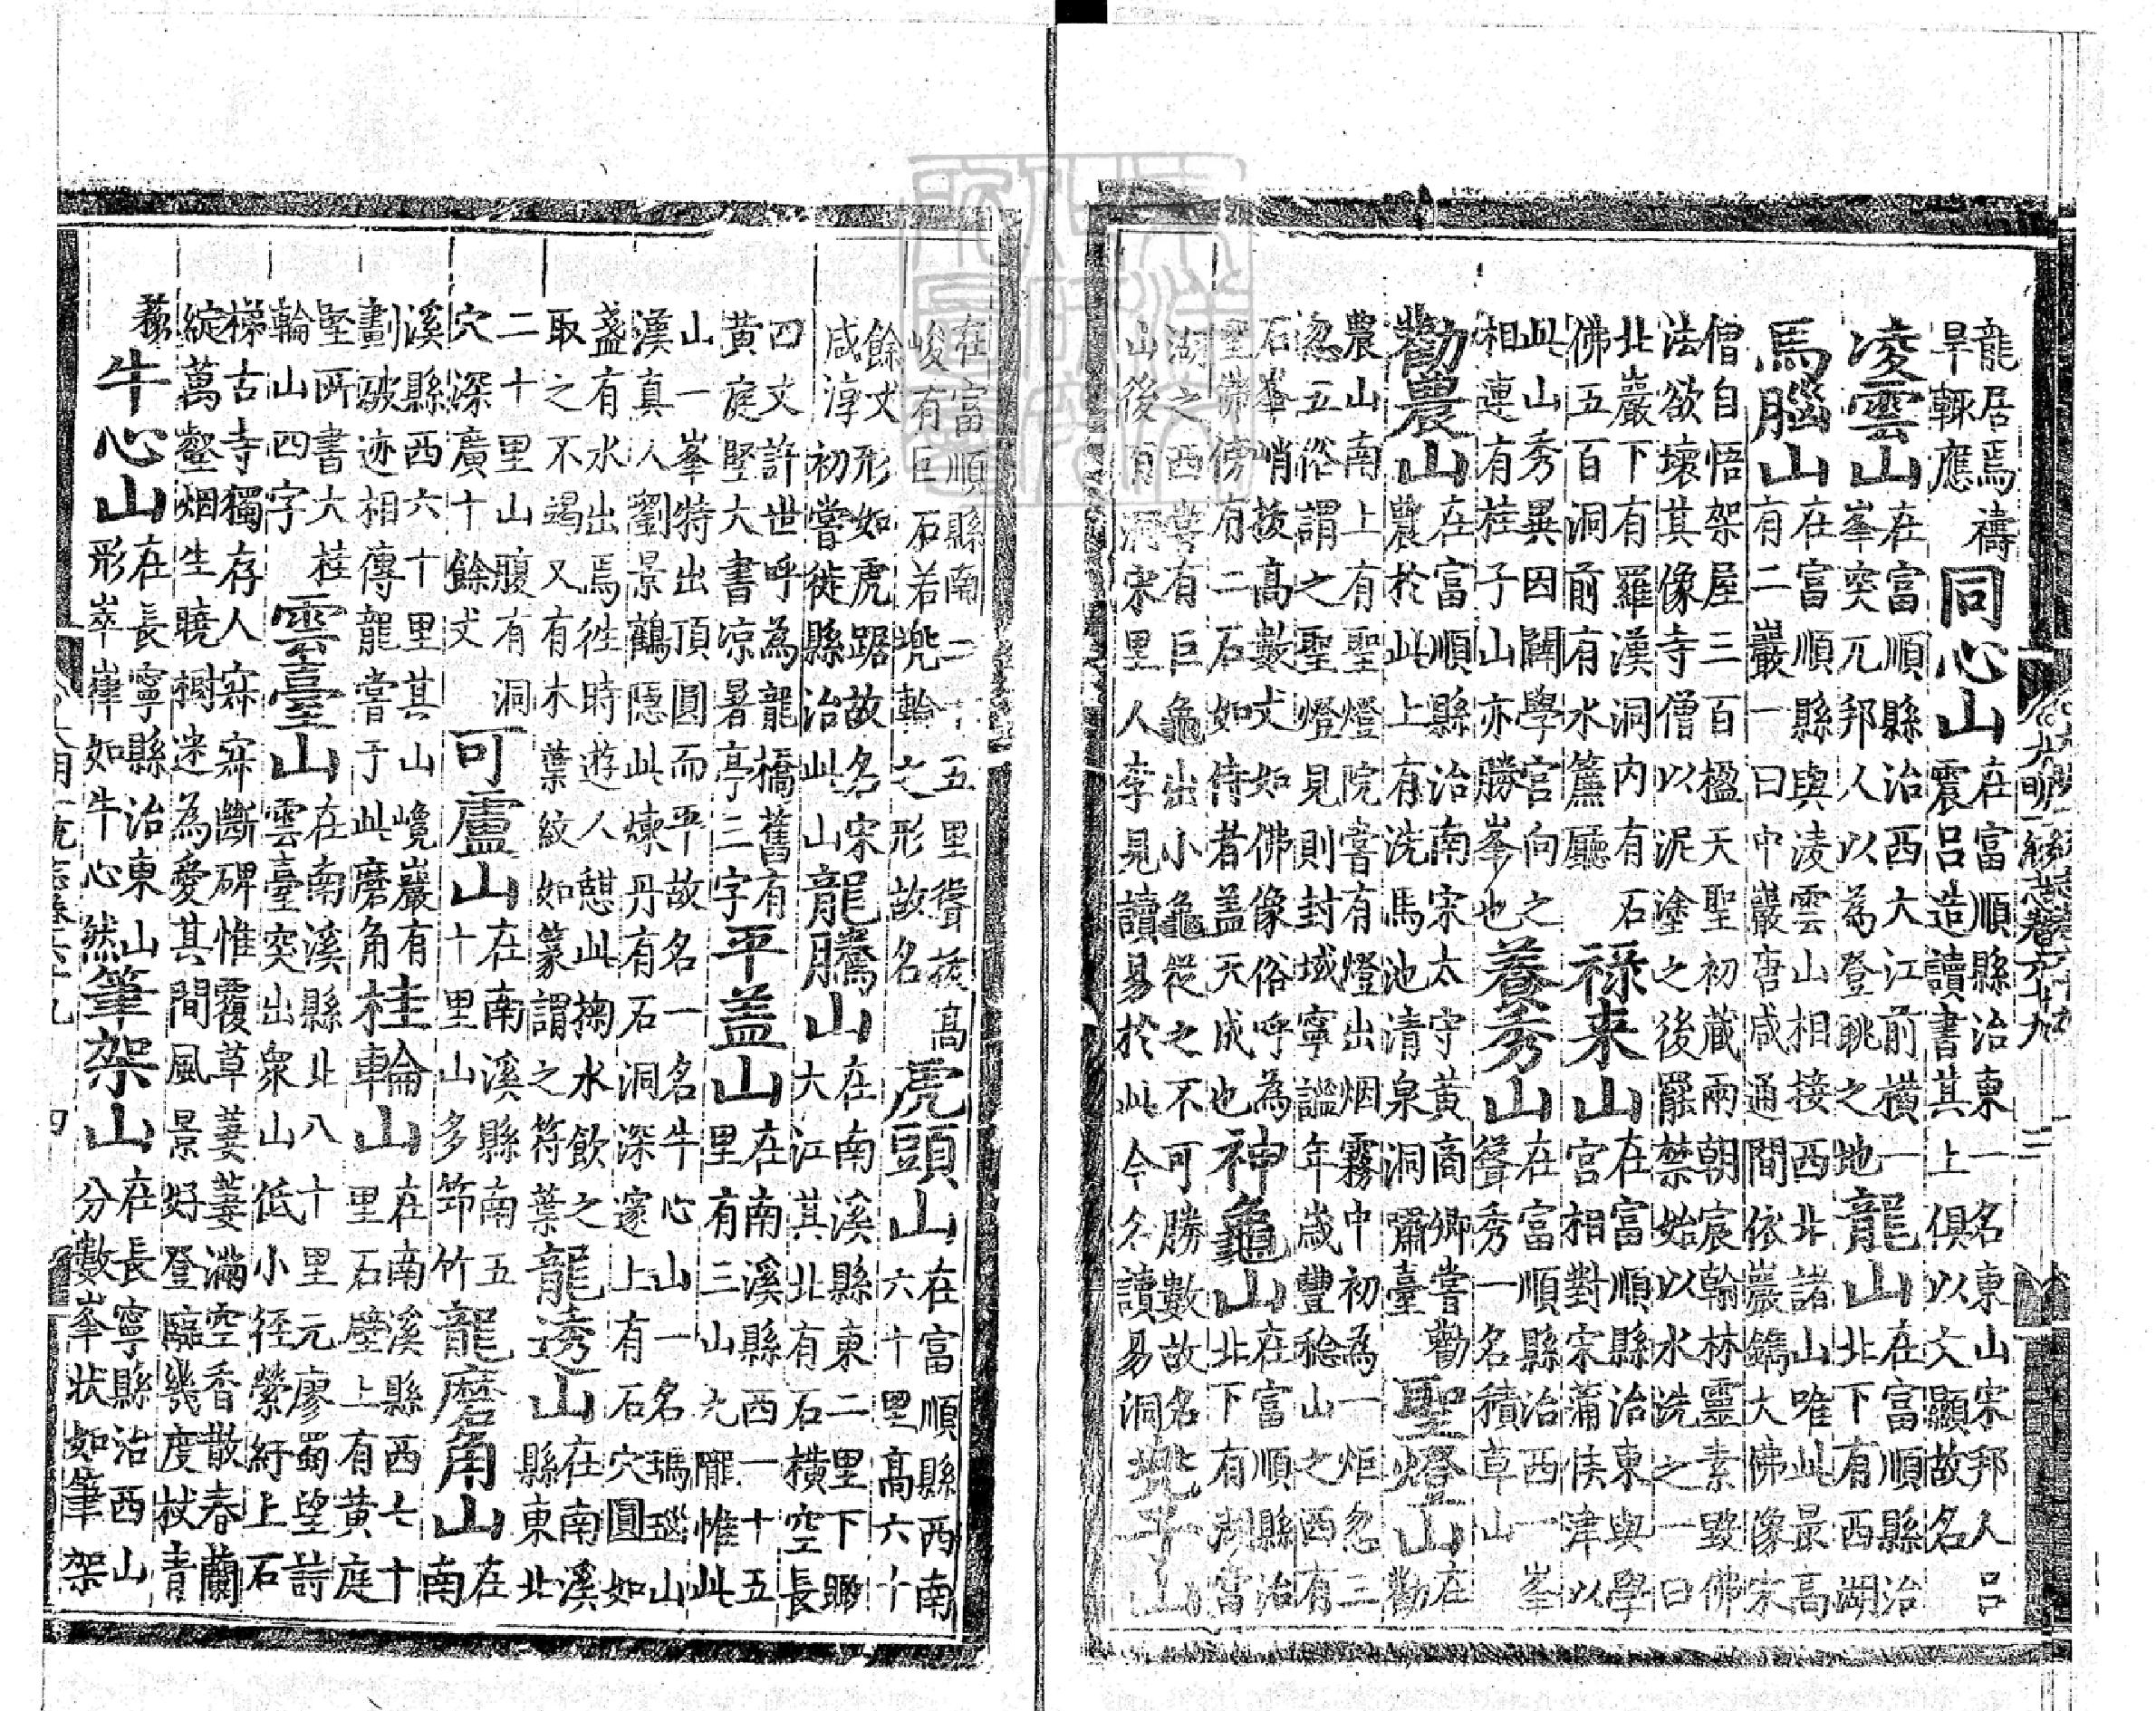 龍居焉禱旱輒應同心山在富順縣治東一名東山宋邦人呂震呂造讀書其上俱以文顯故名
凌雲山在富順縣治西大江前橫一峯突兀邦人以為登眺之地龍山在富順縣治北下有西湖
馬腦山在富順縣與凌雲山相接西北諸山唯此最高有二巖一曰中巖唐咸通間依巖鐫大佛像宋
僧自悟架屋三百楹天聖初藏兩朝宸翰林靈素毀佛法欲壞其像寺僧以泥塗之後罷禁始以水洗之一曰
北巖下有羅漢洞内有石佛五百洞前有水簾廳祿来山在富順縣治東與學宮相對宋蒲侯津以
此山秀異因闢學宮向之相連有桂子山亦勝峯也養秀山在富順縣治西一峯聳秀一名積草山
勸農山在富順縣治南宋太守黃商卿嘗勸農於此上有洗馬池清泉洞嘯臺聖燈山在勸
農山南上有聖燈院嘗有燈出烟霧中初為一炬忽三忽五俗謂之聖燈見則封域寧謐年歲豐稔山之西有
石峯峭拔高數丈如佛像俗呼為聖佛傍有二石如侍者盖天成也神龜山在富順縣治北下有湖當
湖之西嘗有巨龜出小龜從之不可勝數故名山後有洞宋里人李見讀易於此今名讀易洞兜子山
大明一統志卷六十九
在富順縣南二十五里聳拔高峻有巨石若兜輪之形故名虎頭山在富順縣西南六十里高六十
餘丈形如虎踞故名宋咸淳初嘗徙縣治此山龍騰山在南溪縣東二里下瞰大江其北有石橫空長
四丈許世呼為龍橋舊有黃庭堅大書凉暑亭三字平盖山在南溪縣西一十五里有三山九隴惟此
山一峯特出頂圓而平故名一名牛心山一名瑪瑙山漢真人劉景鶴隱此煉丹有石洞深邃上有石穴圓如
盞有水出焉徃時遊人憇此掬水飲之取之不竭又有木葉紋如篆謂之符葉龍透山在南溪縣東北
二十里山腹有洞穴深廣十餘丈可盧山在南溪縣南五十里山多笻竹龍磨角山在南
溪縣西六十里其山巉巖有劃破迹相傳龍嘗于此磨角桂輪山在南溪縣西七十里石壁上有黃庭
堅所書大桂輪山四字雲臺山在南溪縣北八十里元廖蜀望詩雲臺突出衆山低小徑縈紆上石
梯古寺獨存人寂寂斷碑惟覆草萋萋滿空香散春蘭綻萬壑烟生曉樹迷為愛其間風景好登臨幾度杖青
藜牛心山在長寧縣治東山形崒嵂如牛心然筆架山在長寧縣治西山分數峯狀如筆架
大明一統志卷六十九
四